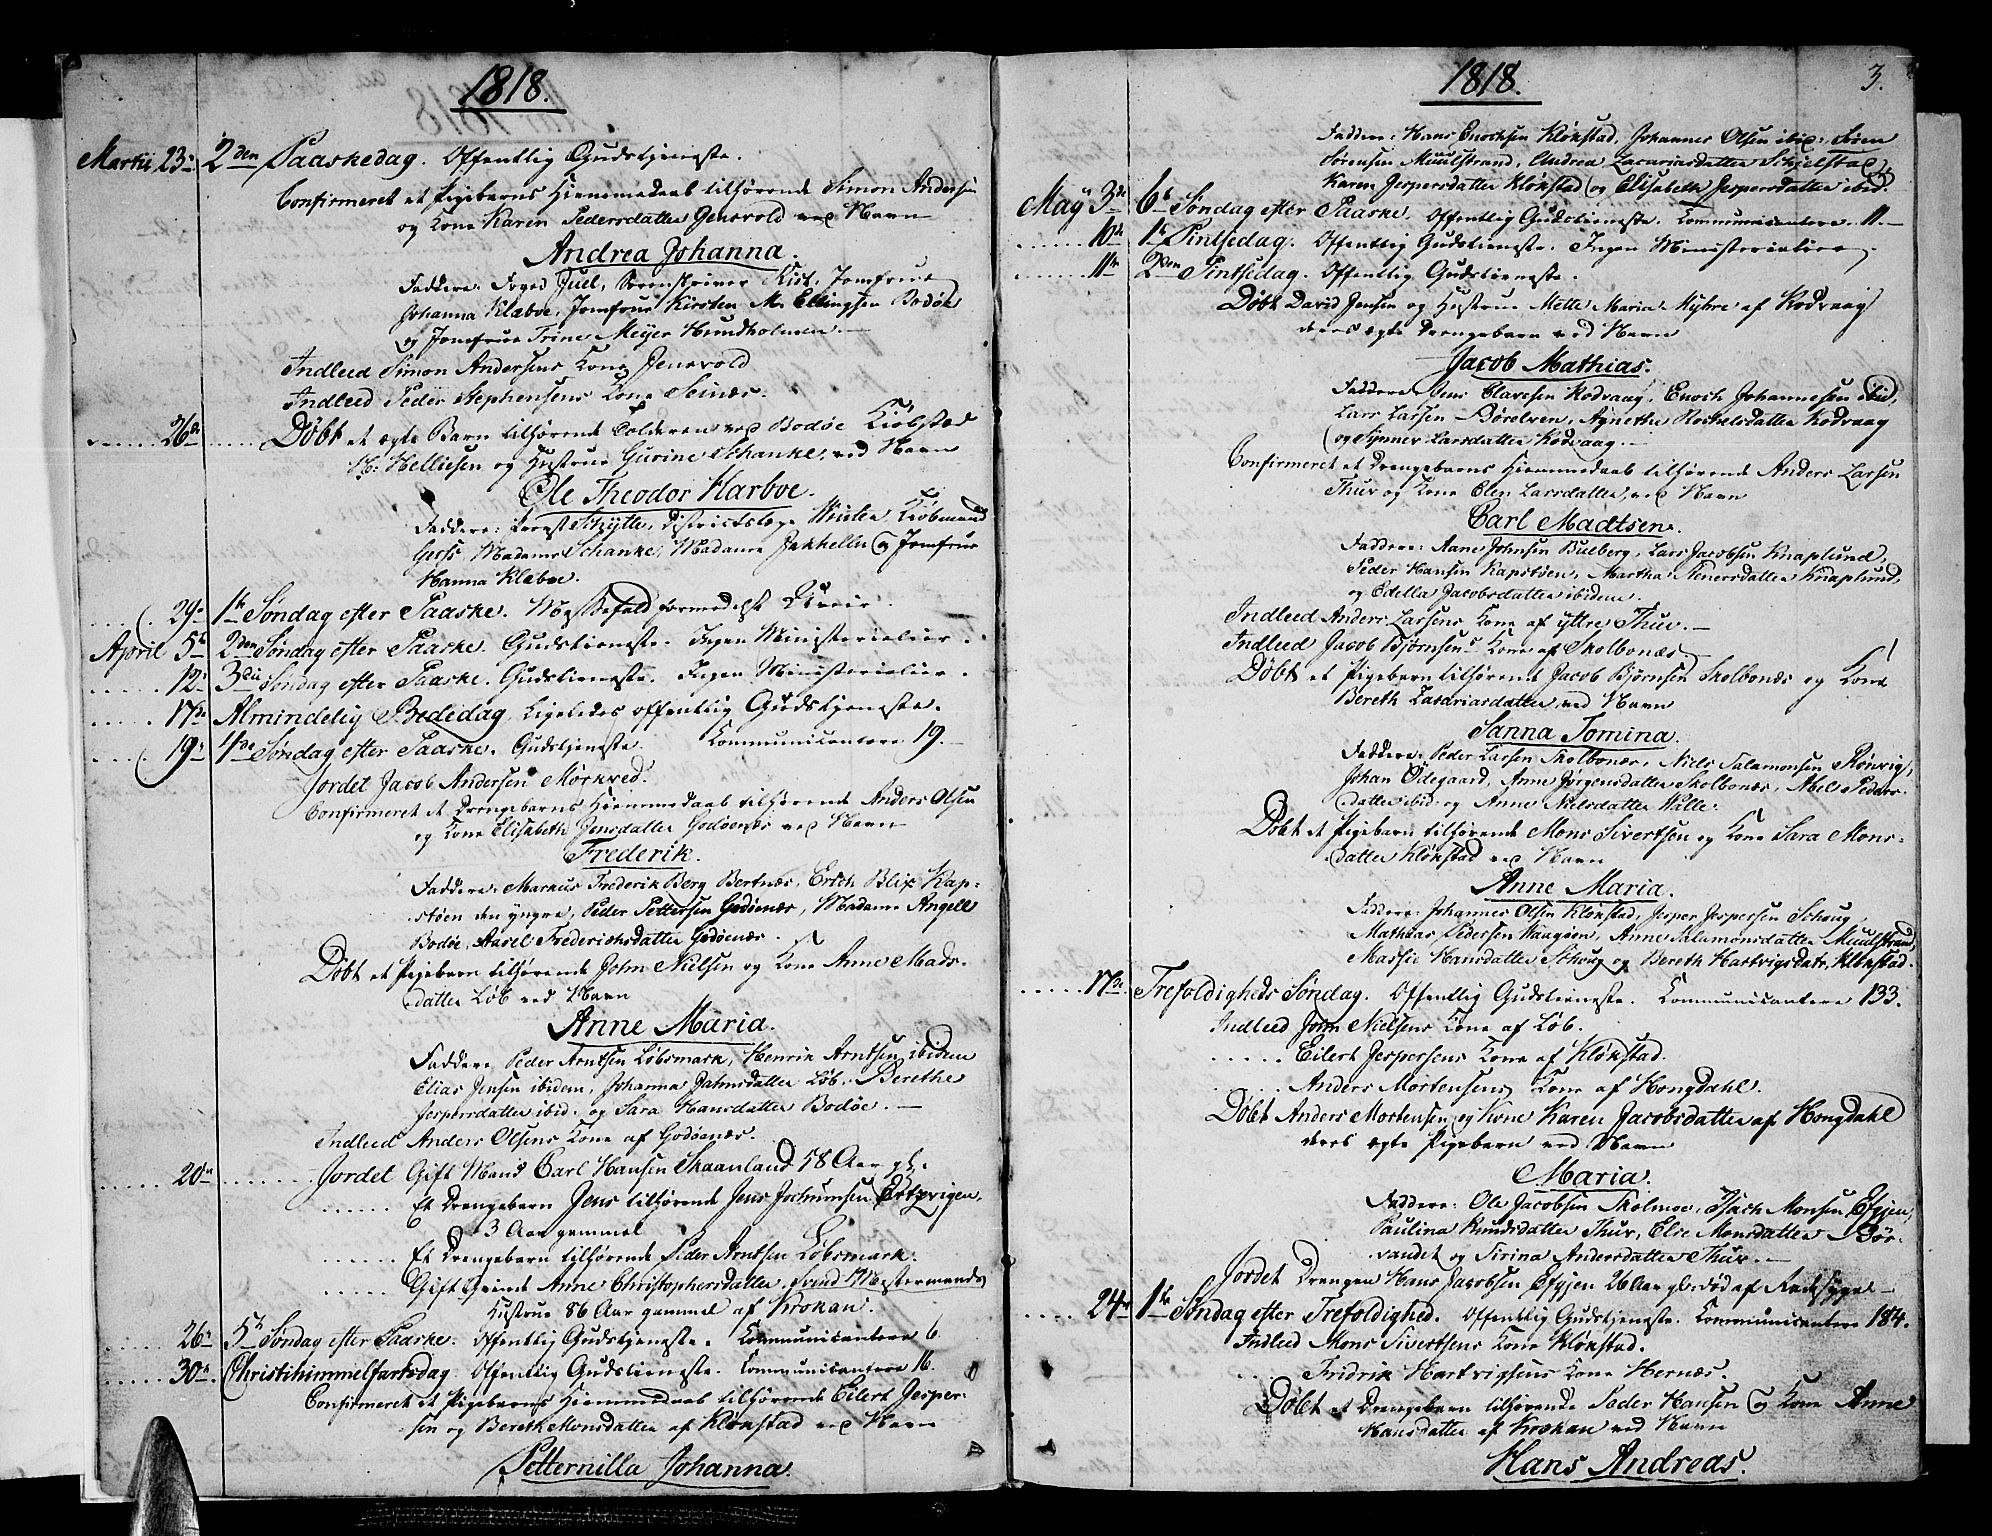 1818.
Martii 23. 2den Paaskedag. Offentlig Gudstjeneste.
Confirmeret et Pigebarns Hjemmedaab tilhørende Simon Andersen
og Kone Karen Pedersdatter Jensvold ved Navn
Andrea Johanna.
Faddere: Foged Juel, Sorenskriver Kist, Jomfrue
Johanna Klæboe, Jomfrue Kirsten M. Ellingsen Bodøe
og Jomfrue Trine Meyer Hundholmen.
Indleed Simon Andersens Kone Jensvold
Indleed Peder Stephensens Kone Seines.
26de Døbt et ægte Barn tilhørende Tolderen ved Bodøe Kiøbstad
H: Helliesen og Hustrue Gurine Schanke, ved Navn
Ole Theodor Harboe.
Faddere: Schytte, Districtslæge Winter, Kiøbmand
Gerss, Madame Schanke, Madame Jakhelln og Jomfrue
Hanna Klæboe.
29. 1te Søndag efter Paaske. Messefald formedelst Uveir.
April 5te 2den Søndag efter Paaske. Gudstieneste. Ingen Ministerialier.
12. 3die Søndag efter Paaske. Gudstieneste. Ingen Ministerialier.
17de Almindelig Bededag, ligeledes offentlig Gudstjeneste.
19. 4de Søndag efter Paaske. Gudstjeneste. Kommunicantere 19.
Jordet Jacob Andersen Mørkved.
Confirmeret et Drengebarns Hjemmedaab tilhørende Anders Olsen
og Kone Elisabeth Jensdatter Godøenæs ved Navn
Frederik.
Faddere: Markus Frederik Berg Bertnæs, Erich Blix Kap-
støen den yngre, Peder Pettersen Godøenæs, Madame Angell
Bodøe, Aasel Frederichsdatter Godøenæs.
Døbt et Pigebarn tilhørende John Nielsen og Kone Anne Mads-
datter Løb ved Navn
Anne Maria.
Faddere Peder Arntsen Løbsmark, Henrik Arntsen ibidem
Elias Jensen ibidem, Johanna Jahnsdatter Løb, Berethe
Jespersdatter ibid. og Sara Hansdatter Bodøe.
Indleed Anders Olsens Kone af Godøenæs.
20de Jordet Gift Mand Carl Hansen Skaanland 58 Aar gl.
Et Drengebarn Jens tilhørende Jens Jochumsen
3 Aar gammel
Et Drengebarn tilhørende Peder Arntsen Løbsmark.
Gift Qvinde Anne Christophersdatter, Svend Mestermands
Hustrue 86 Aar gammel af Krokan.
26. 5te Søndag efter Paaske. Offentlig Gudstjeneste. Communicantere 6.
30te Christihimmelfartsdag. Offentlig Gudstjeneste. Communicantere 16.
Confirmeret et Pigebarns Hjemmedaab tilhørende Eilert Jesper-
sen og Bereth Monsdatter af Kløkstad ved Navn
Petternilla Johanna.
1818. 3.
Faddere: Hans Enochsen Kløkstad, Johannes Olsen ibid: Søren
Sørensen Muulstrand, Andrea Zacariasdatter Skjelstad
Karen Jespersdatter Kløkstad og Elisabeth Jespersdatter ibid.
May 3de 6te Søndag efter Paaske. Offentlig Gudstieneste. Kommunicantere 11.
10de 1te Pintsedag. Offentlig Gudstieneste. Ingen Ministerialier.
11te 2den Pintsedag. Offentlig Gudstieneste.
Døbt David Jensen og Hustrue Mette Maria Myhre af Kodvaag
deres ægte Drengebarn ved Navn
Jacob Mathias.
Faddere: Jens Olavesen Kodvaag, Enoch Johannesen ibid,
Lars Larsen Børelven, Agnethe Kodvaag
og Synner Larsdatter Kodvaag.
Confirmeret et Drengebarns Hjemmedaab tilhørende Anders Larsen
Thuv og Kone Elen Larsdatter, ved Navn
Carl Madtsen.
Faddere: Aane Johnsen Bulberg, Lars Jacobsen Knaplund,
Peder Hansen Kapstøen, Martha Knaplund,
og Edella Jacobsdatter ibidem.
Indleed Anders Larsens Kone af yttre Thuv.
Indleed Jacob Bjørnsens Kone af Skolbonæs
Døbt et Pigebarn tilhørende Jacob Bjørnsen Skolbonæs og Kone
Bereth Zacariasdatter ved Navn
Sanna Tomina.
Faddere: Peder Larsen Skolbonæs, Niels Salamonsen Rønvig,
Johan Ødegaard, Anne Jørgensdatter Skolbonæs, Abel Peders-
datter ibid: og Anne Nielsdatter Walle.
Døbt et Pigebarn tilhørende Mons Sivertsen og Kone Sara Mons-
datter Kløkstad ved Navn
Anne Maria.
Faddere: Johannes Olsen Kløkstad, Jesper Jespersen Schoug,
Mathias Pedersen Waagøen, Anne Salamonsdatter Muulstrand,
Massie Hansdatter Schoug og Bereth Hartvigsdatr. Kløkstad.
17de Trefoldigheds Søndag. Offentlig Gudstieneste. Kommunicantere 133.
Indleed John Nielsens Kone af Løb.
Eilert Jespersens Kone af Kløkstad.
Anders Mortensens Kone af Hongdahl.
Døbt Anders Mortensen og Kone Karen Jacobsdatter af Hongdahl
deres ægte Pigebarn ved Navn
Maria.
Faddere: Ole Jacobsen Skolmoe, Isach Monsen Efjen,
Paulina Knudsdatter Thuv, Else Monsdatter Bør-
vandet og Sirina Andersdatter Thuv.
Jordet Drengen Hans Jacobsen Efjen 26 Aar gl: død af
24de 1te Søndag efter Trefoldighed. Offentlig Gudstjeneste. Communicantere 184.
Indleed Mons Sivertsens Kone Kløkstad.
Fridrik Hartvigsens Kone Hernæs.
Døbt et Drengebarn tilhørende Peder Hansen og Kone Anne
Hansdatter af Krokan ved Navn
Hans Andreas.